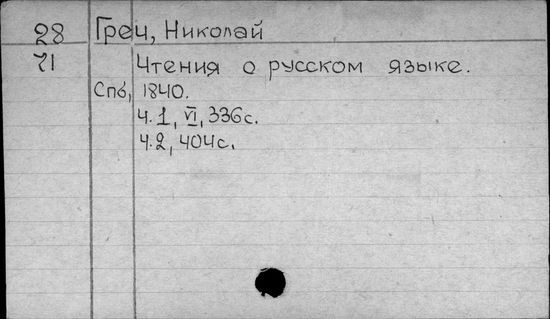 28 Греч, Николай
71 Чтения о русском языке.
Спб, 1840.
ч.1, VI, 336с.
ч.2, 404с.